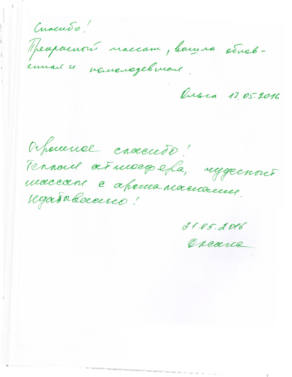 Спасибо!
Прекрасный массаж, вышла обнов-
ленная и помолодевшая.
Ольга 17.05.2016
Огромное спасибо!
Теплая атмосфера, чудесный
массаж с аромамаслами.
21.05.2016
Оксана